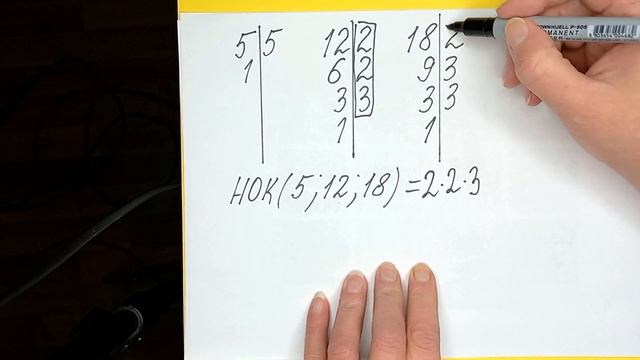 5 5 12 2 18 2
1 6 2 9 3
3 3 3 3
1 1
НОК(5;12;18)=2·2·3